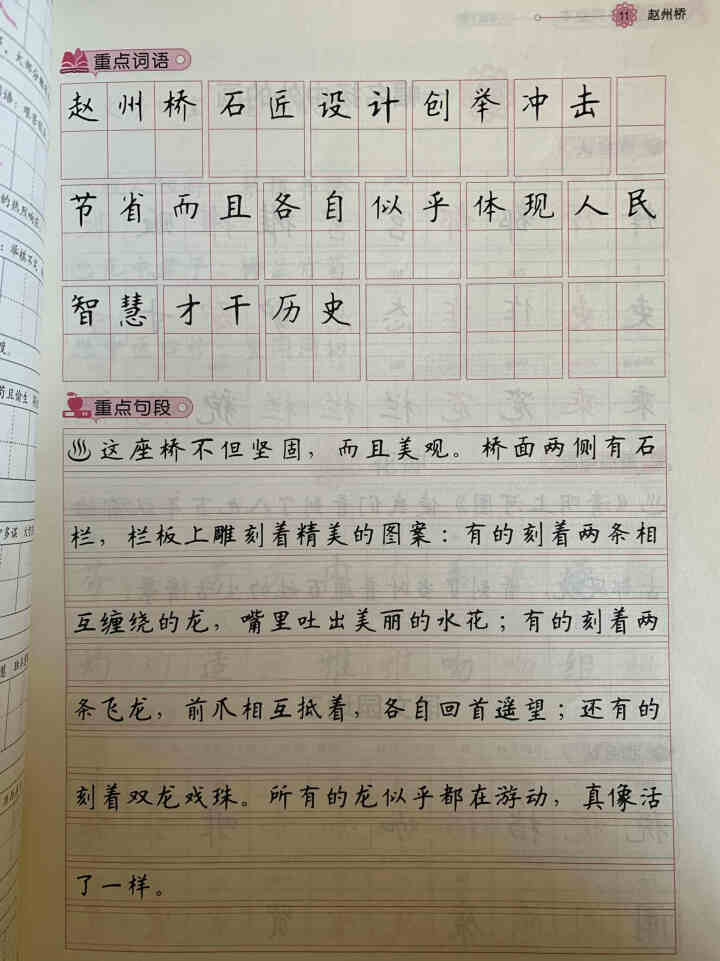 11 赵州桥
重点词语
赵州桥 石匠 设计 创举 冲击
节省 而且 各自 似乎 体现 人民
智慧 才干 历史
重点句段
这座桥不但坚固，而且美观。桥面两侧有石
栏，栏板上雕刻着精美的图案：有的刻着两条相
互缠绕的龙，嘴里吐出美丽的水花；有的刻着两
条飞龙，前爪相互抵着，各自回首遥望；还有的
刻着双龙戏珠。所有的龙似乎都在游动，真像活
了一样。